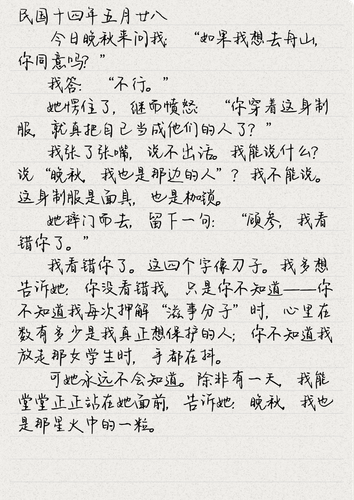 民国十四年五月廿八
今日晚秋来问我：“如果我想去舟山，
你同意吗？”
我答：“不行。”
她愣住了，继而愤怒：“你穿着这身制
服，就真把自己当成他们的人了？”
我张了张嘴，说不出话。我能说什么？
说“晚秋，我也是那边的人”？我不能说。
这身制服是面具，也是枷锁。
她摔门而去，留下一句：“顾参，我看
错你了。”
我看错你了。这四个字像刀子。我多想
告诉她，你没看错我，只是你不知道——你
不知道我每次押解“滋事分子”时，心里在
数有多少是我真正想保护的人；你不知道我
放走那女学生时，手都在抖。
可她永远不会知道。除非有一天，我能
堂堂正正站在她面前，告诉她：晚秋，我也
是那星火中的一粒。